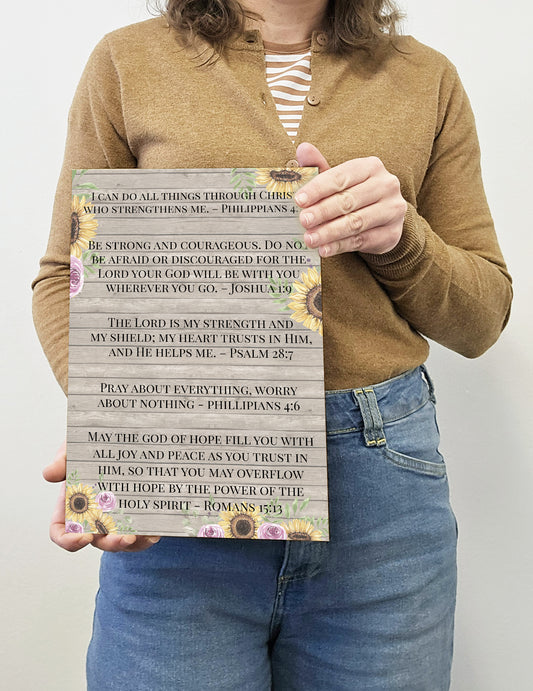 I can do all things through Chris
who strengthens me. – Philippians 4:
Be strong and courageous. Do no
be afraid or discouraged for the
Lord your God will be with you
wherever you go. – Joshua 1:9
The Lord is my strength and
my shield; my heart trusts in Him,
and He helps me. – Psalm 28:7
Pray about everything, worry
about nothing - Phillipians 4:6
May the god of hope fill you with
all joy and peace as you trust in
him, so that you may overflow
with hope by the power of the
holy spirit - Romans 15:13